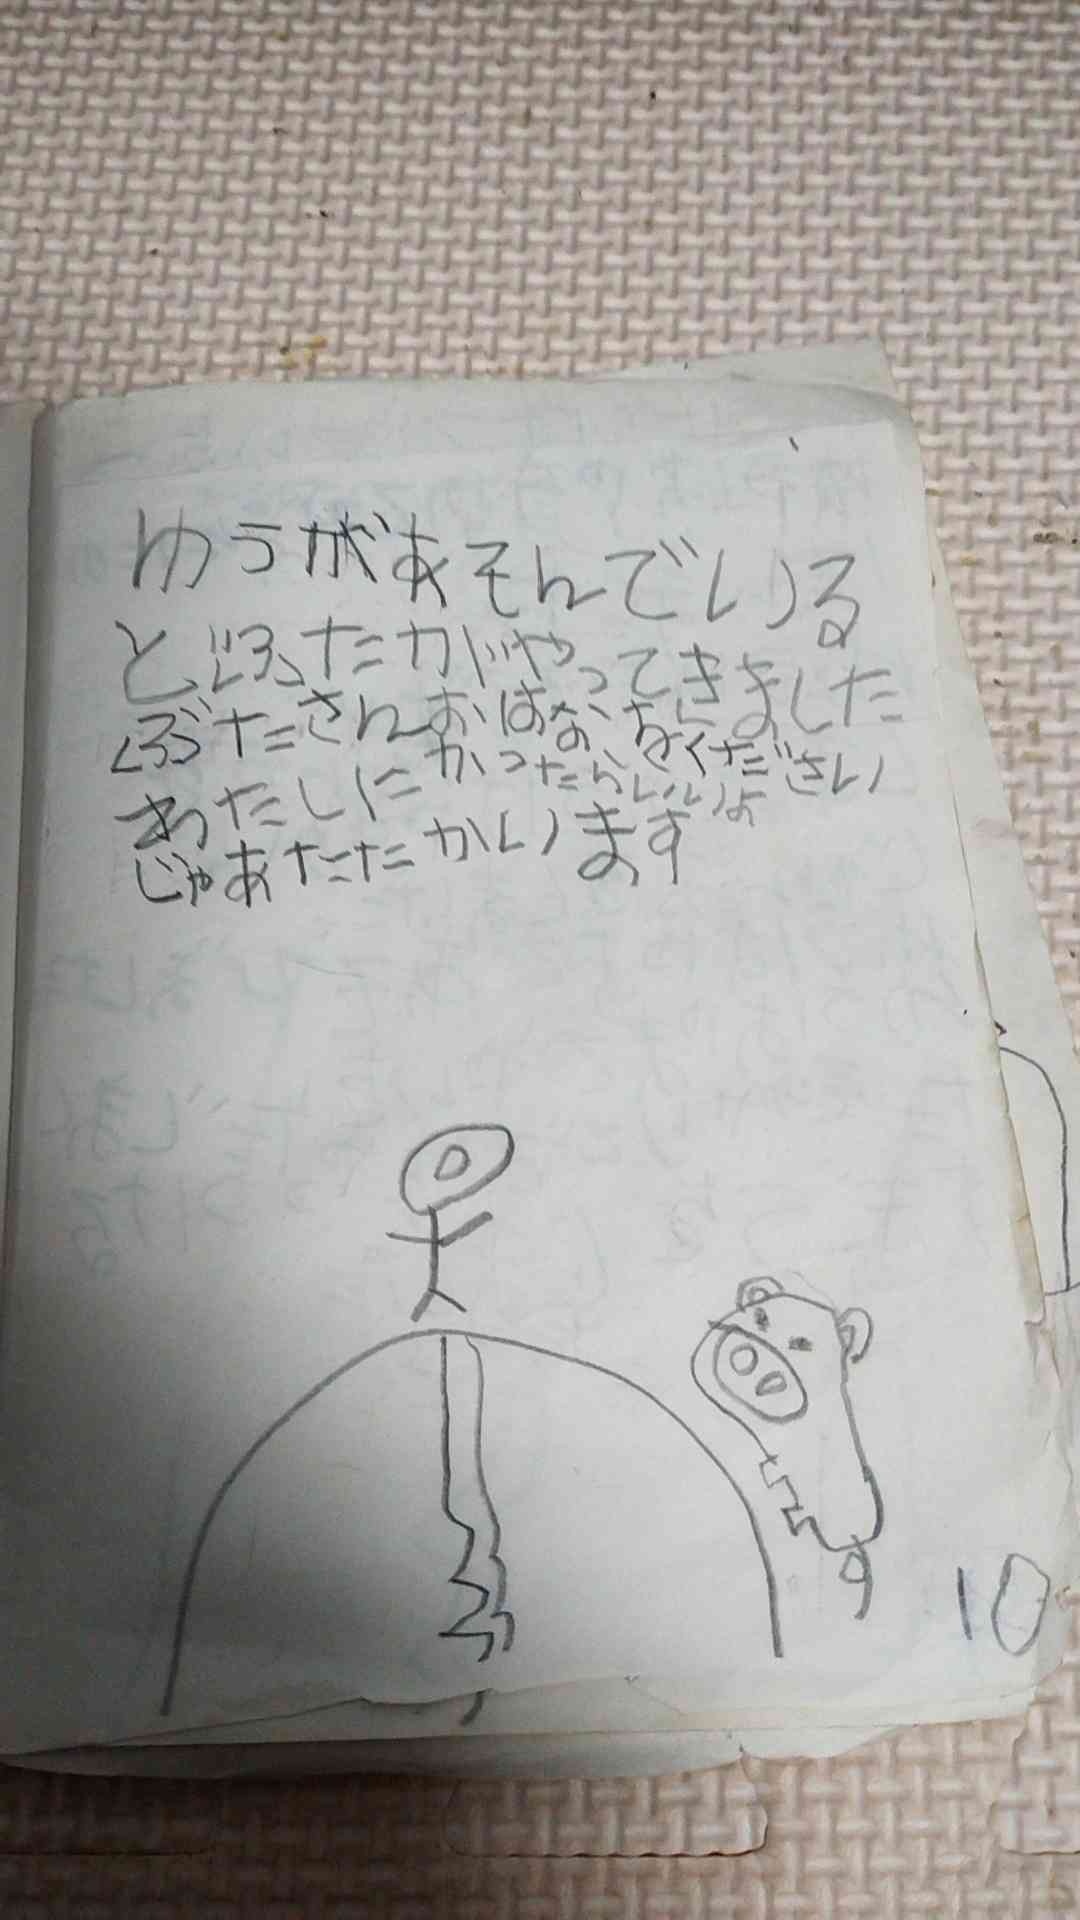 ゆうがあそんでいる
とぶたがやってきました
ぶたさんおはなをください
わたしにかったらいいよ
じゃあたたかいます
10